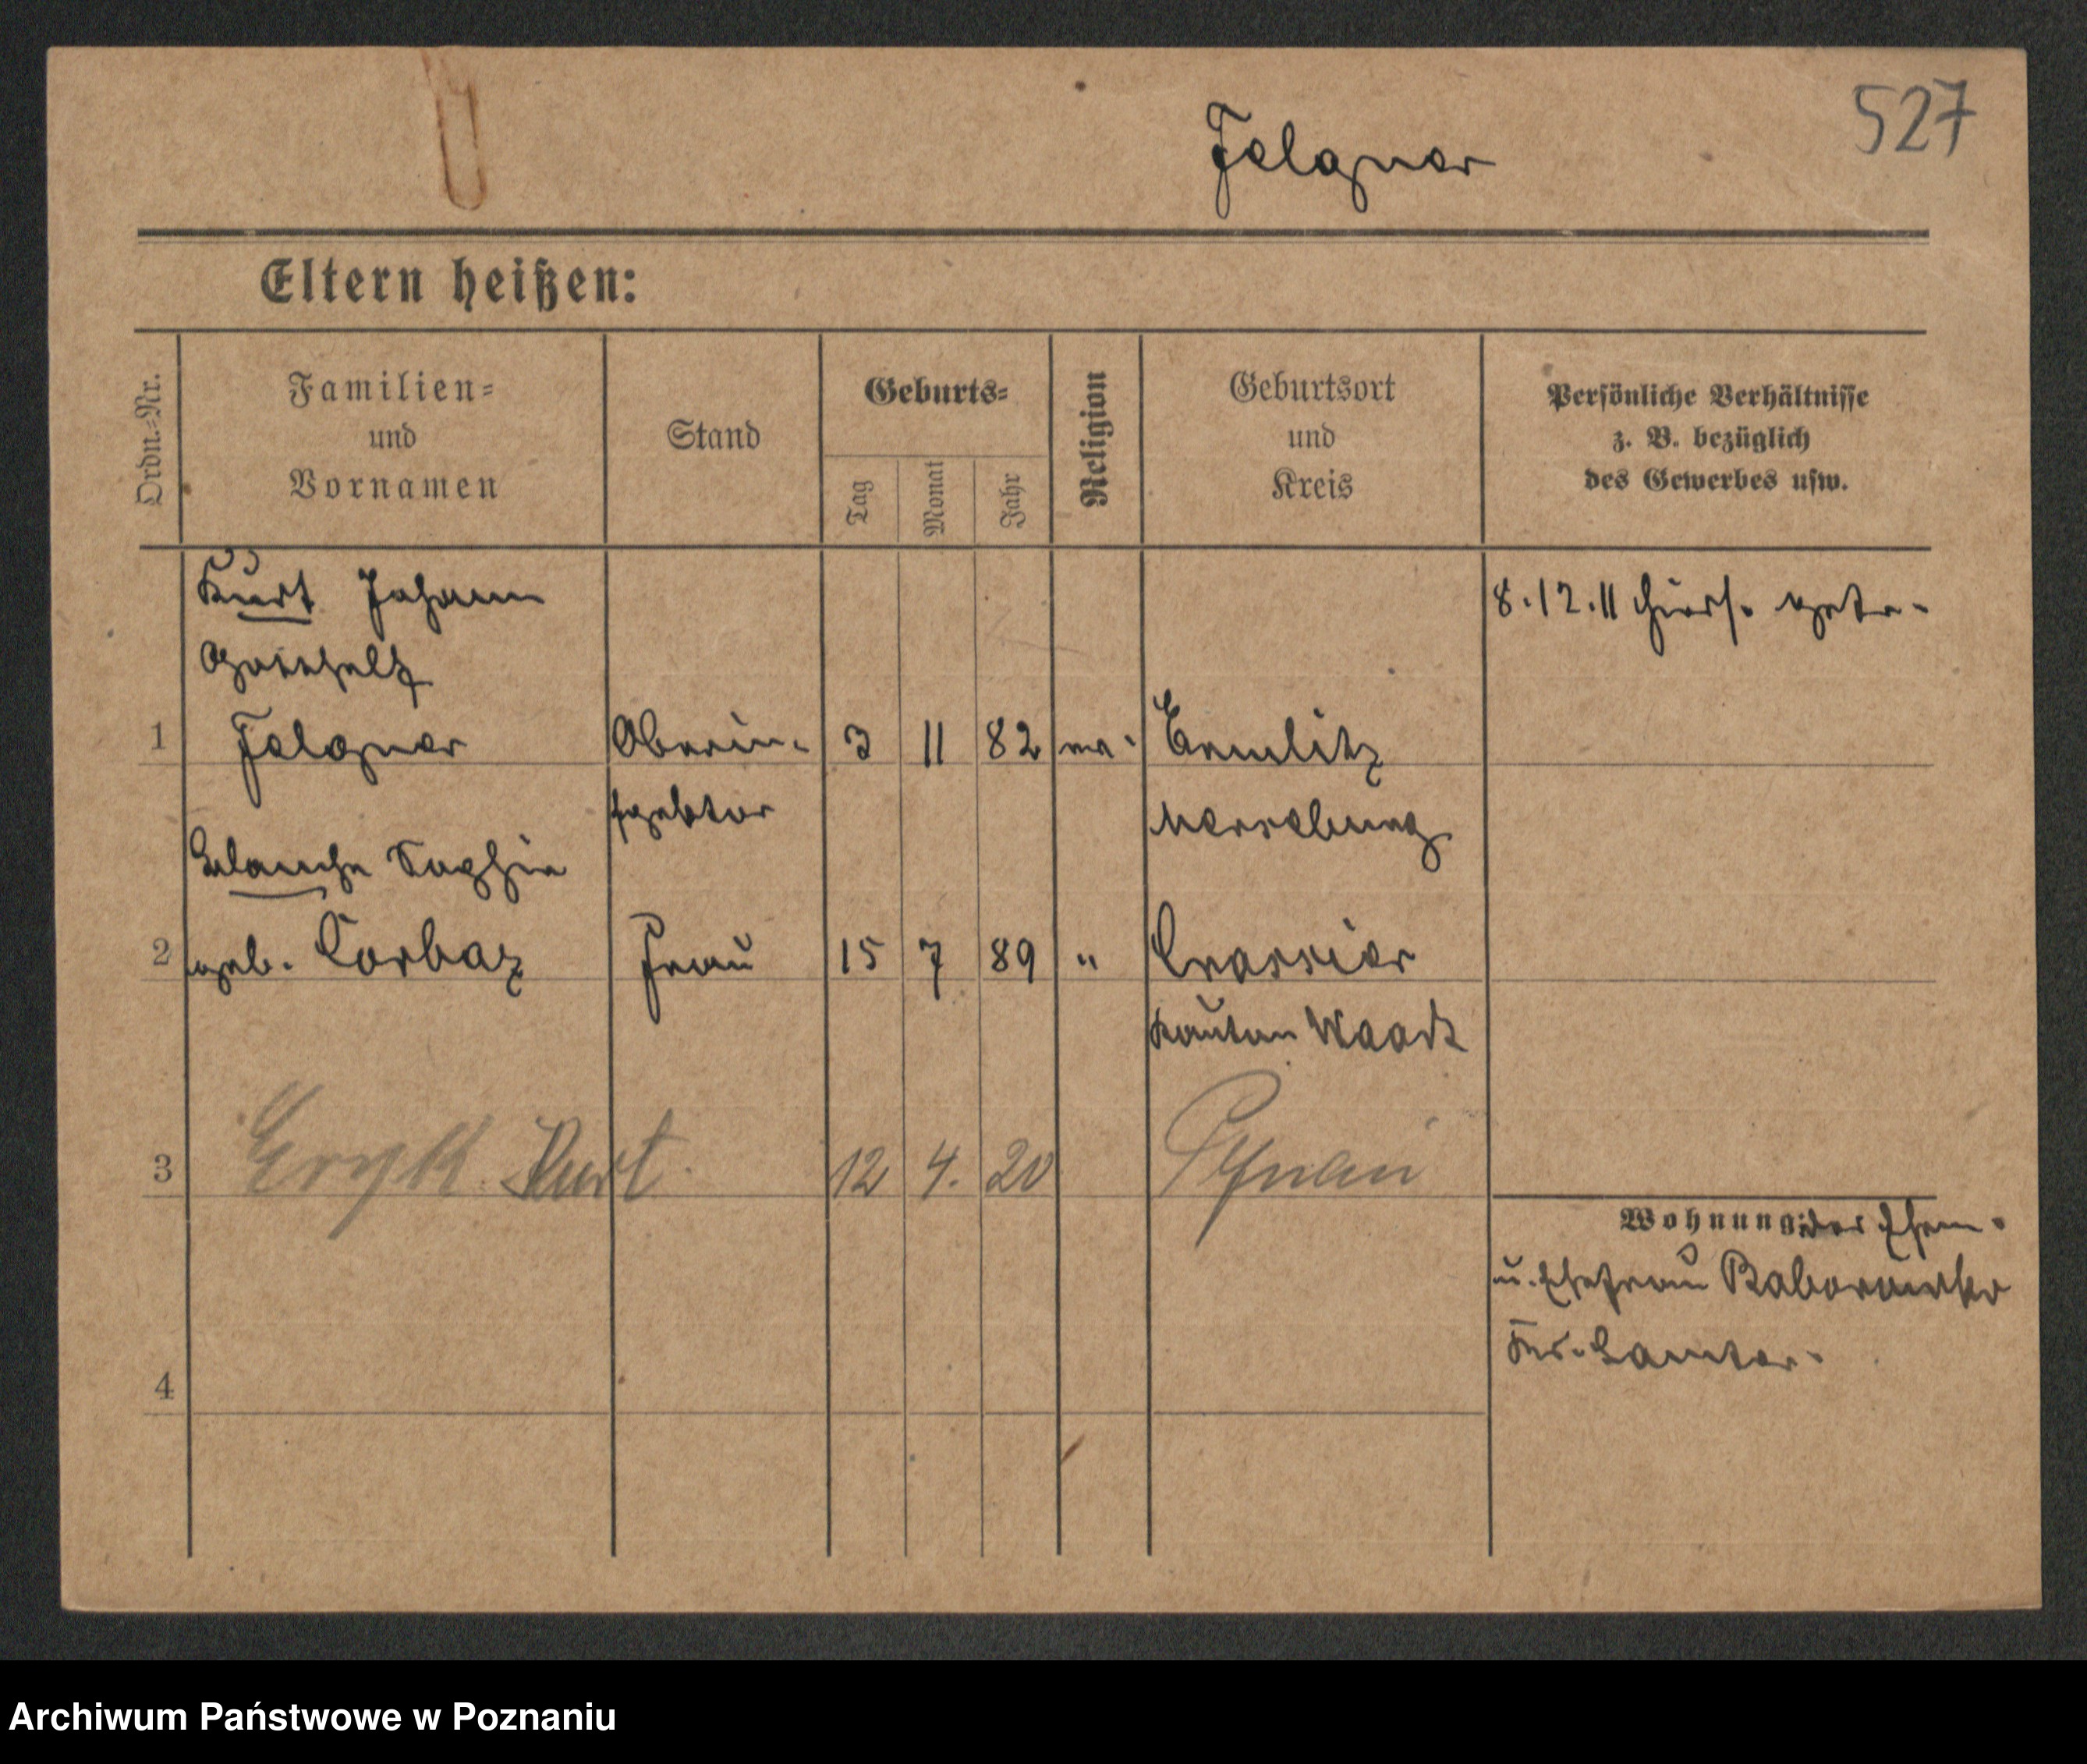 527
Felgner
Eltern heißen:
Ordn.-Nr.
Familien-
und
Vornamen
Stand
Geburts-
Tag
Monat
Jahr
Religion
Geburtsort
und
Kreis
Persönliche Verhältnisse
z. B. bezüglich
des Gewerbes usw.
Kurt Johann
Gotthelf
8.12.11 hiers. getr.
1 Felgner Oberin- 3 11 82 ev. Ermlitz
spektor Merseburg
Blanche Sophie
2 geb. Corbaz Frau 15 7 89 " Crassier
Kanton Waadt
3 Eryk Kurt. 12 4. 20
Wohnung: der Ehem-
u. Ehefrau Baborowko
Kr. Samter.
4
Archiwum Państwowe w Poznaniu